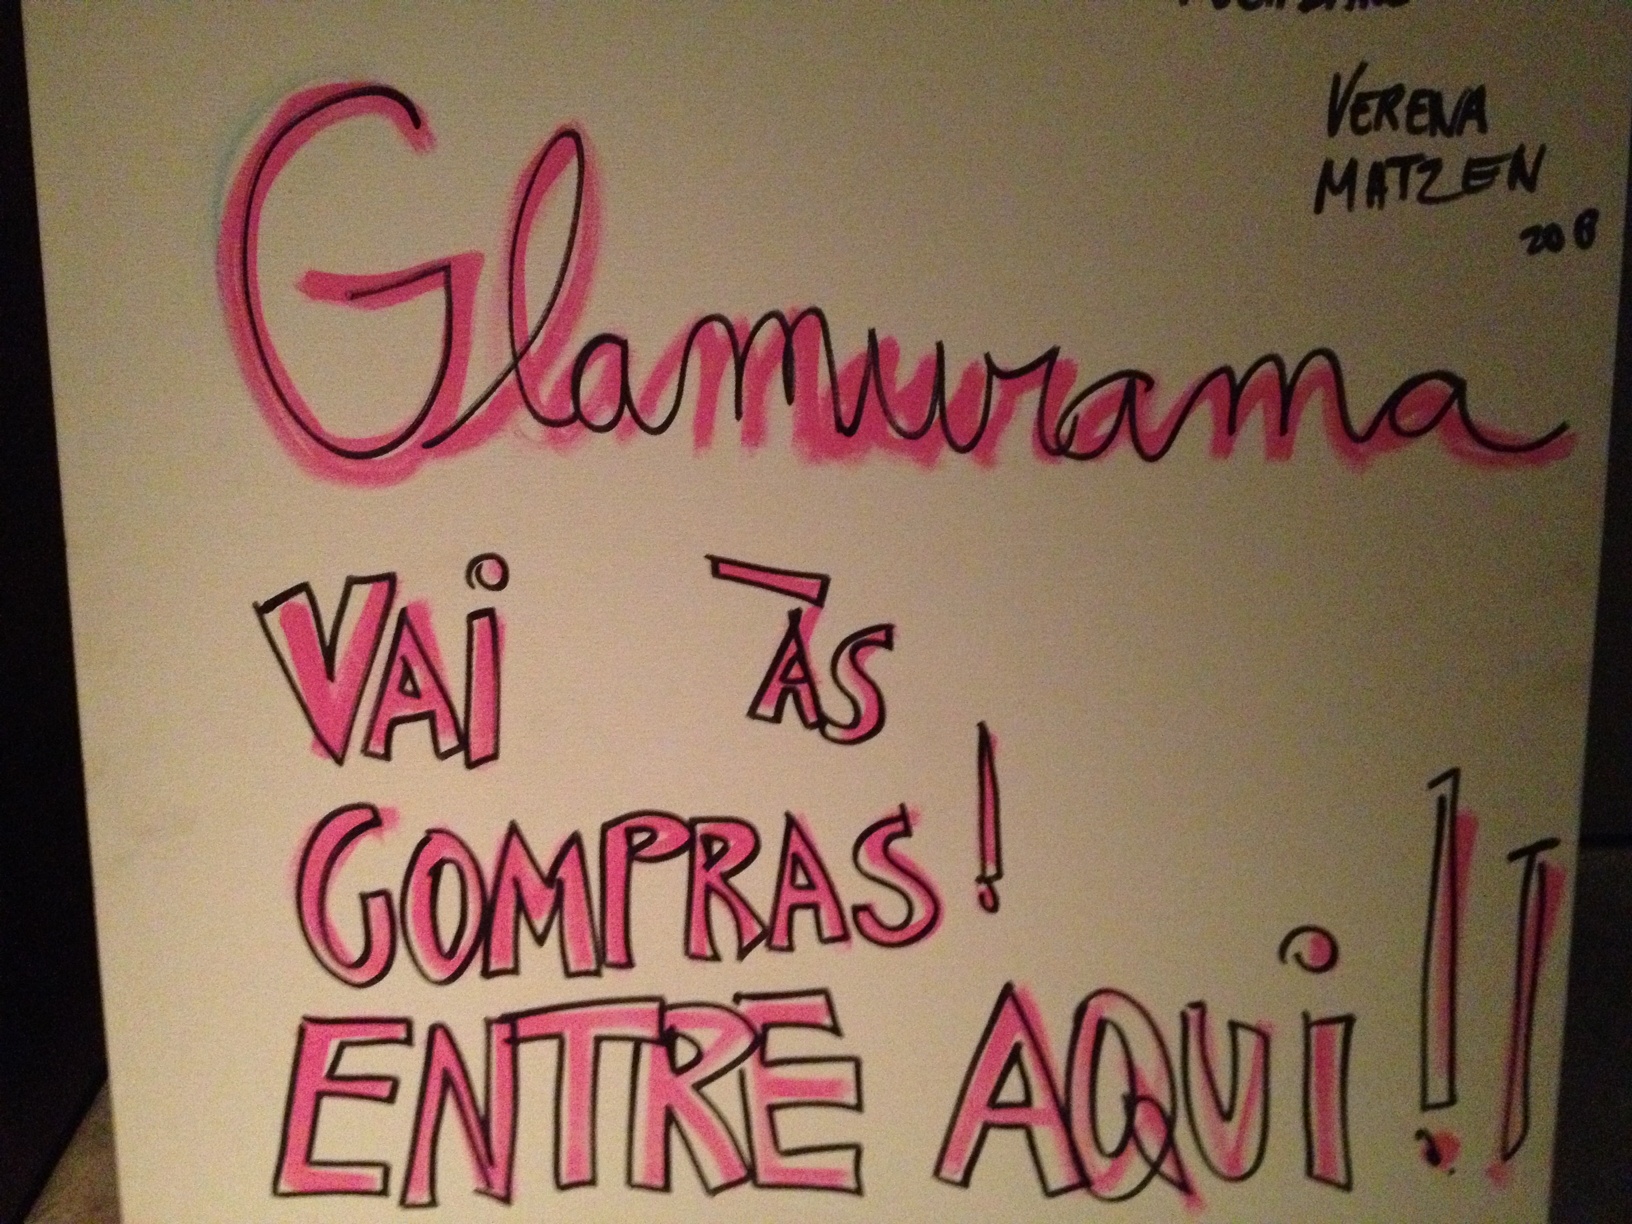 VERENA
MATZEN
Glamurama
VAi ÀS
COMPRAS!
ENTRE AQUi!!